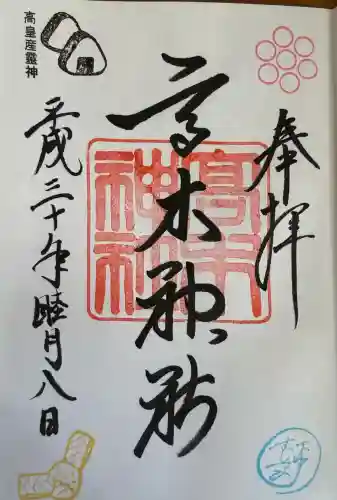 奉拝
高木神社
高木
神社
平成三十年睦月八日
高皇産靈神